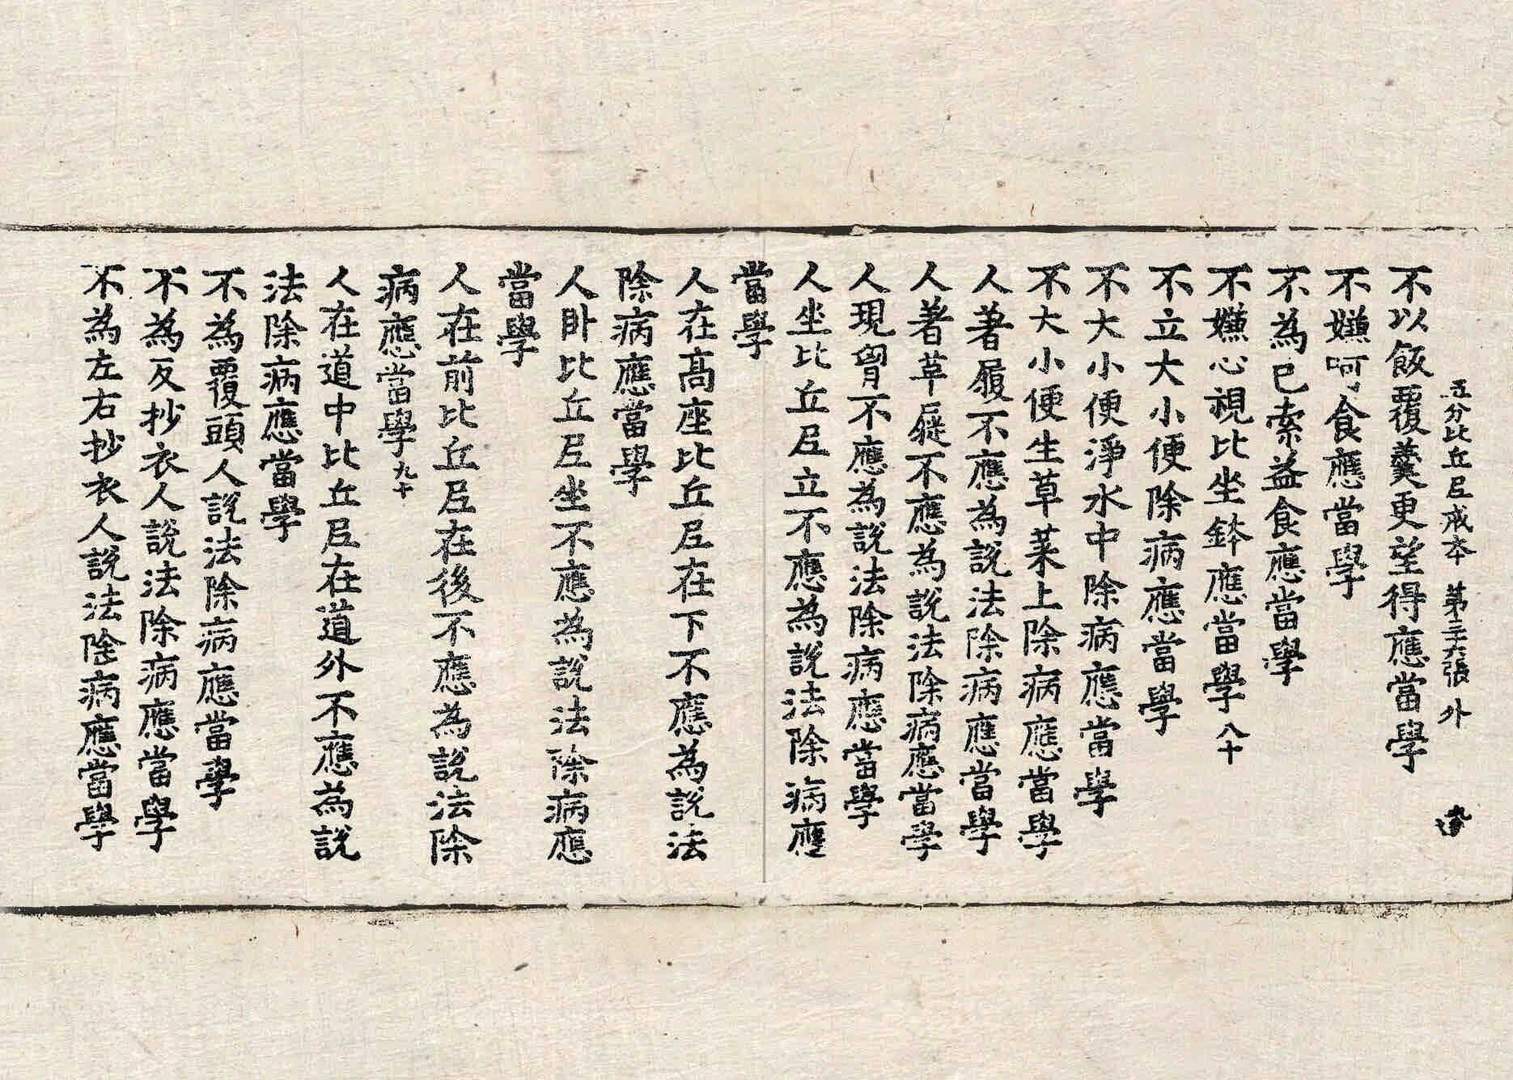 五分比丘尼戒本 第三十六張 外
不以飯覆羹更望得應當學
不嫌呵食應當學
不為已索益食應當學
不嫌心視比坐鉢應當學八十
不立大小便除病應當學
不大小便淨水中除病應當學
不大小便生草菜上除病應當學
人著履不應為說法除病應當學
人著草屣不應為說法除病應當學
人現胷不應為說法除病應當學
人坐比丘尼立不應為說法除病應
當學
人在高座比丘尼在下不應為說法
除病應當學
人卧比丘尼坐不應為說法除病應
當學
人在前比丘尼在後不應為說法除
病應當學九十
人在道中比丘尼在道外不應為說
法除病應當學
不為覆頭人說法除病應當學
不為反抄衣人說法除病應當學
不為左右抄衣人說法除病應當學